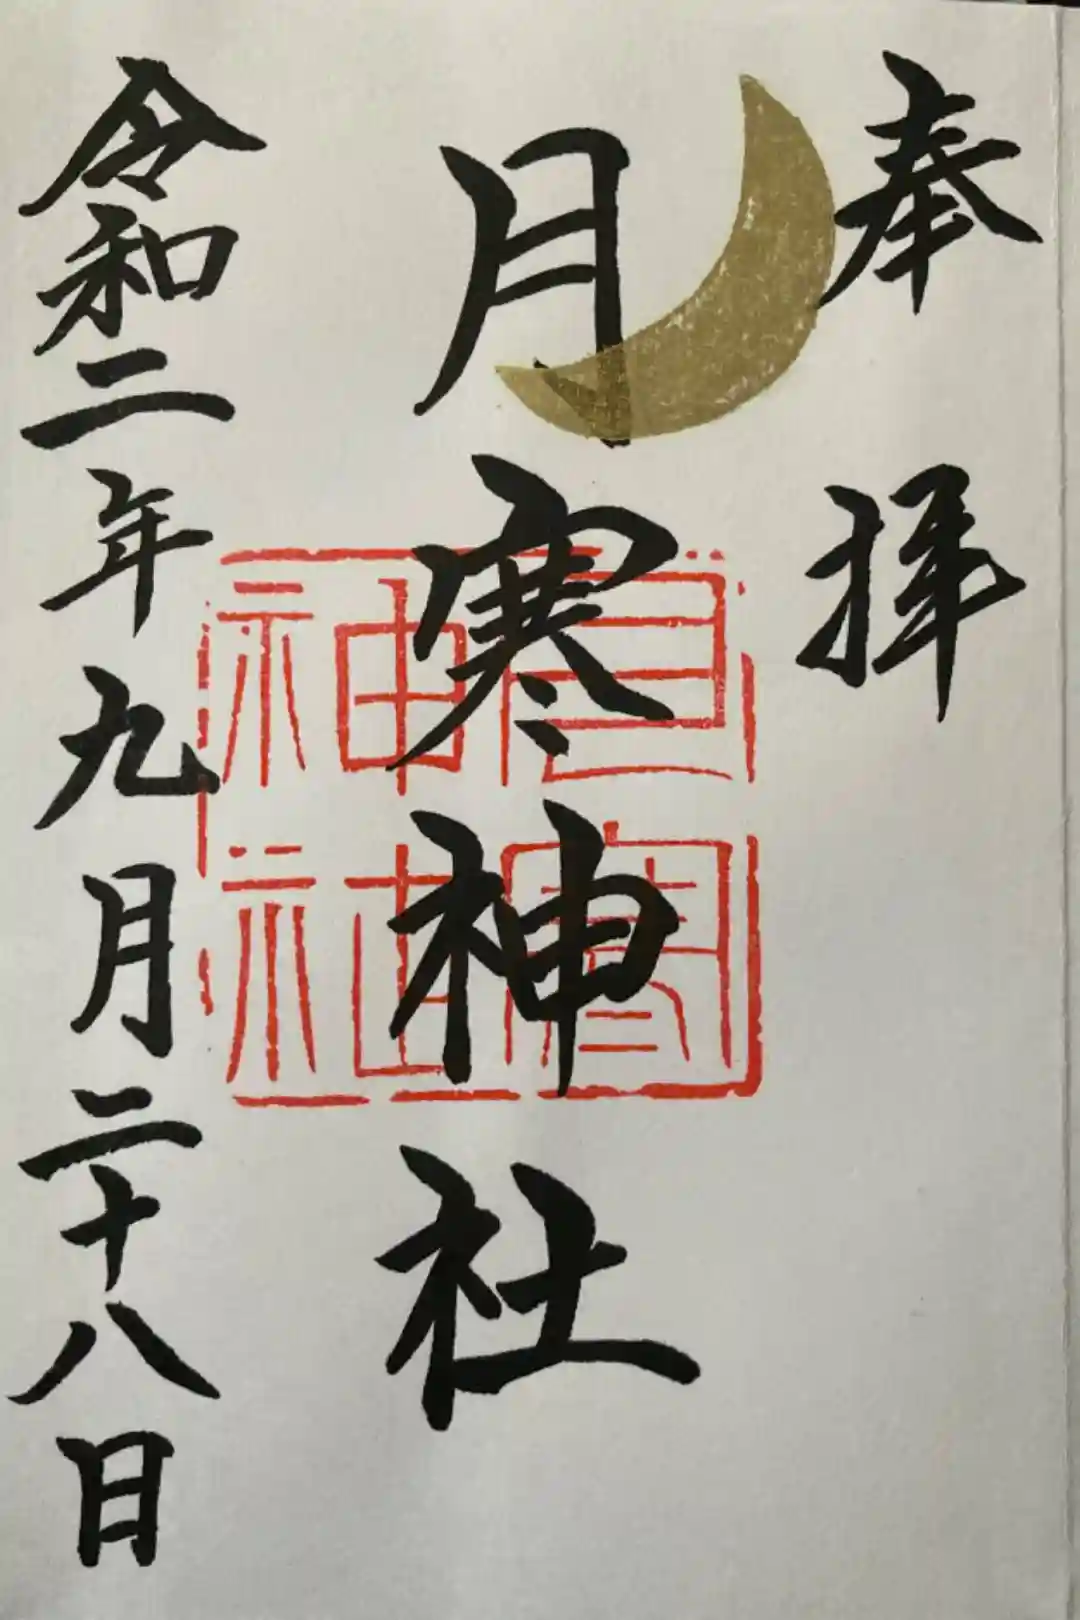 奉拝
月寒神社
月寒
神社
令和二年九月二十八日